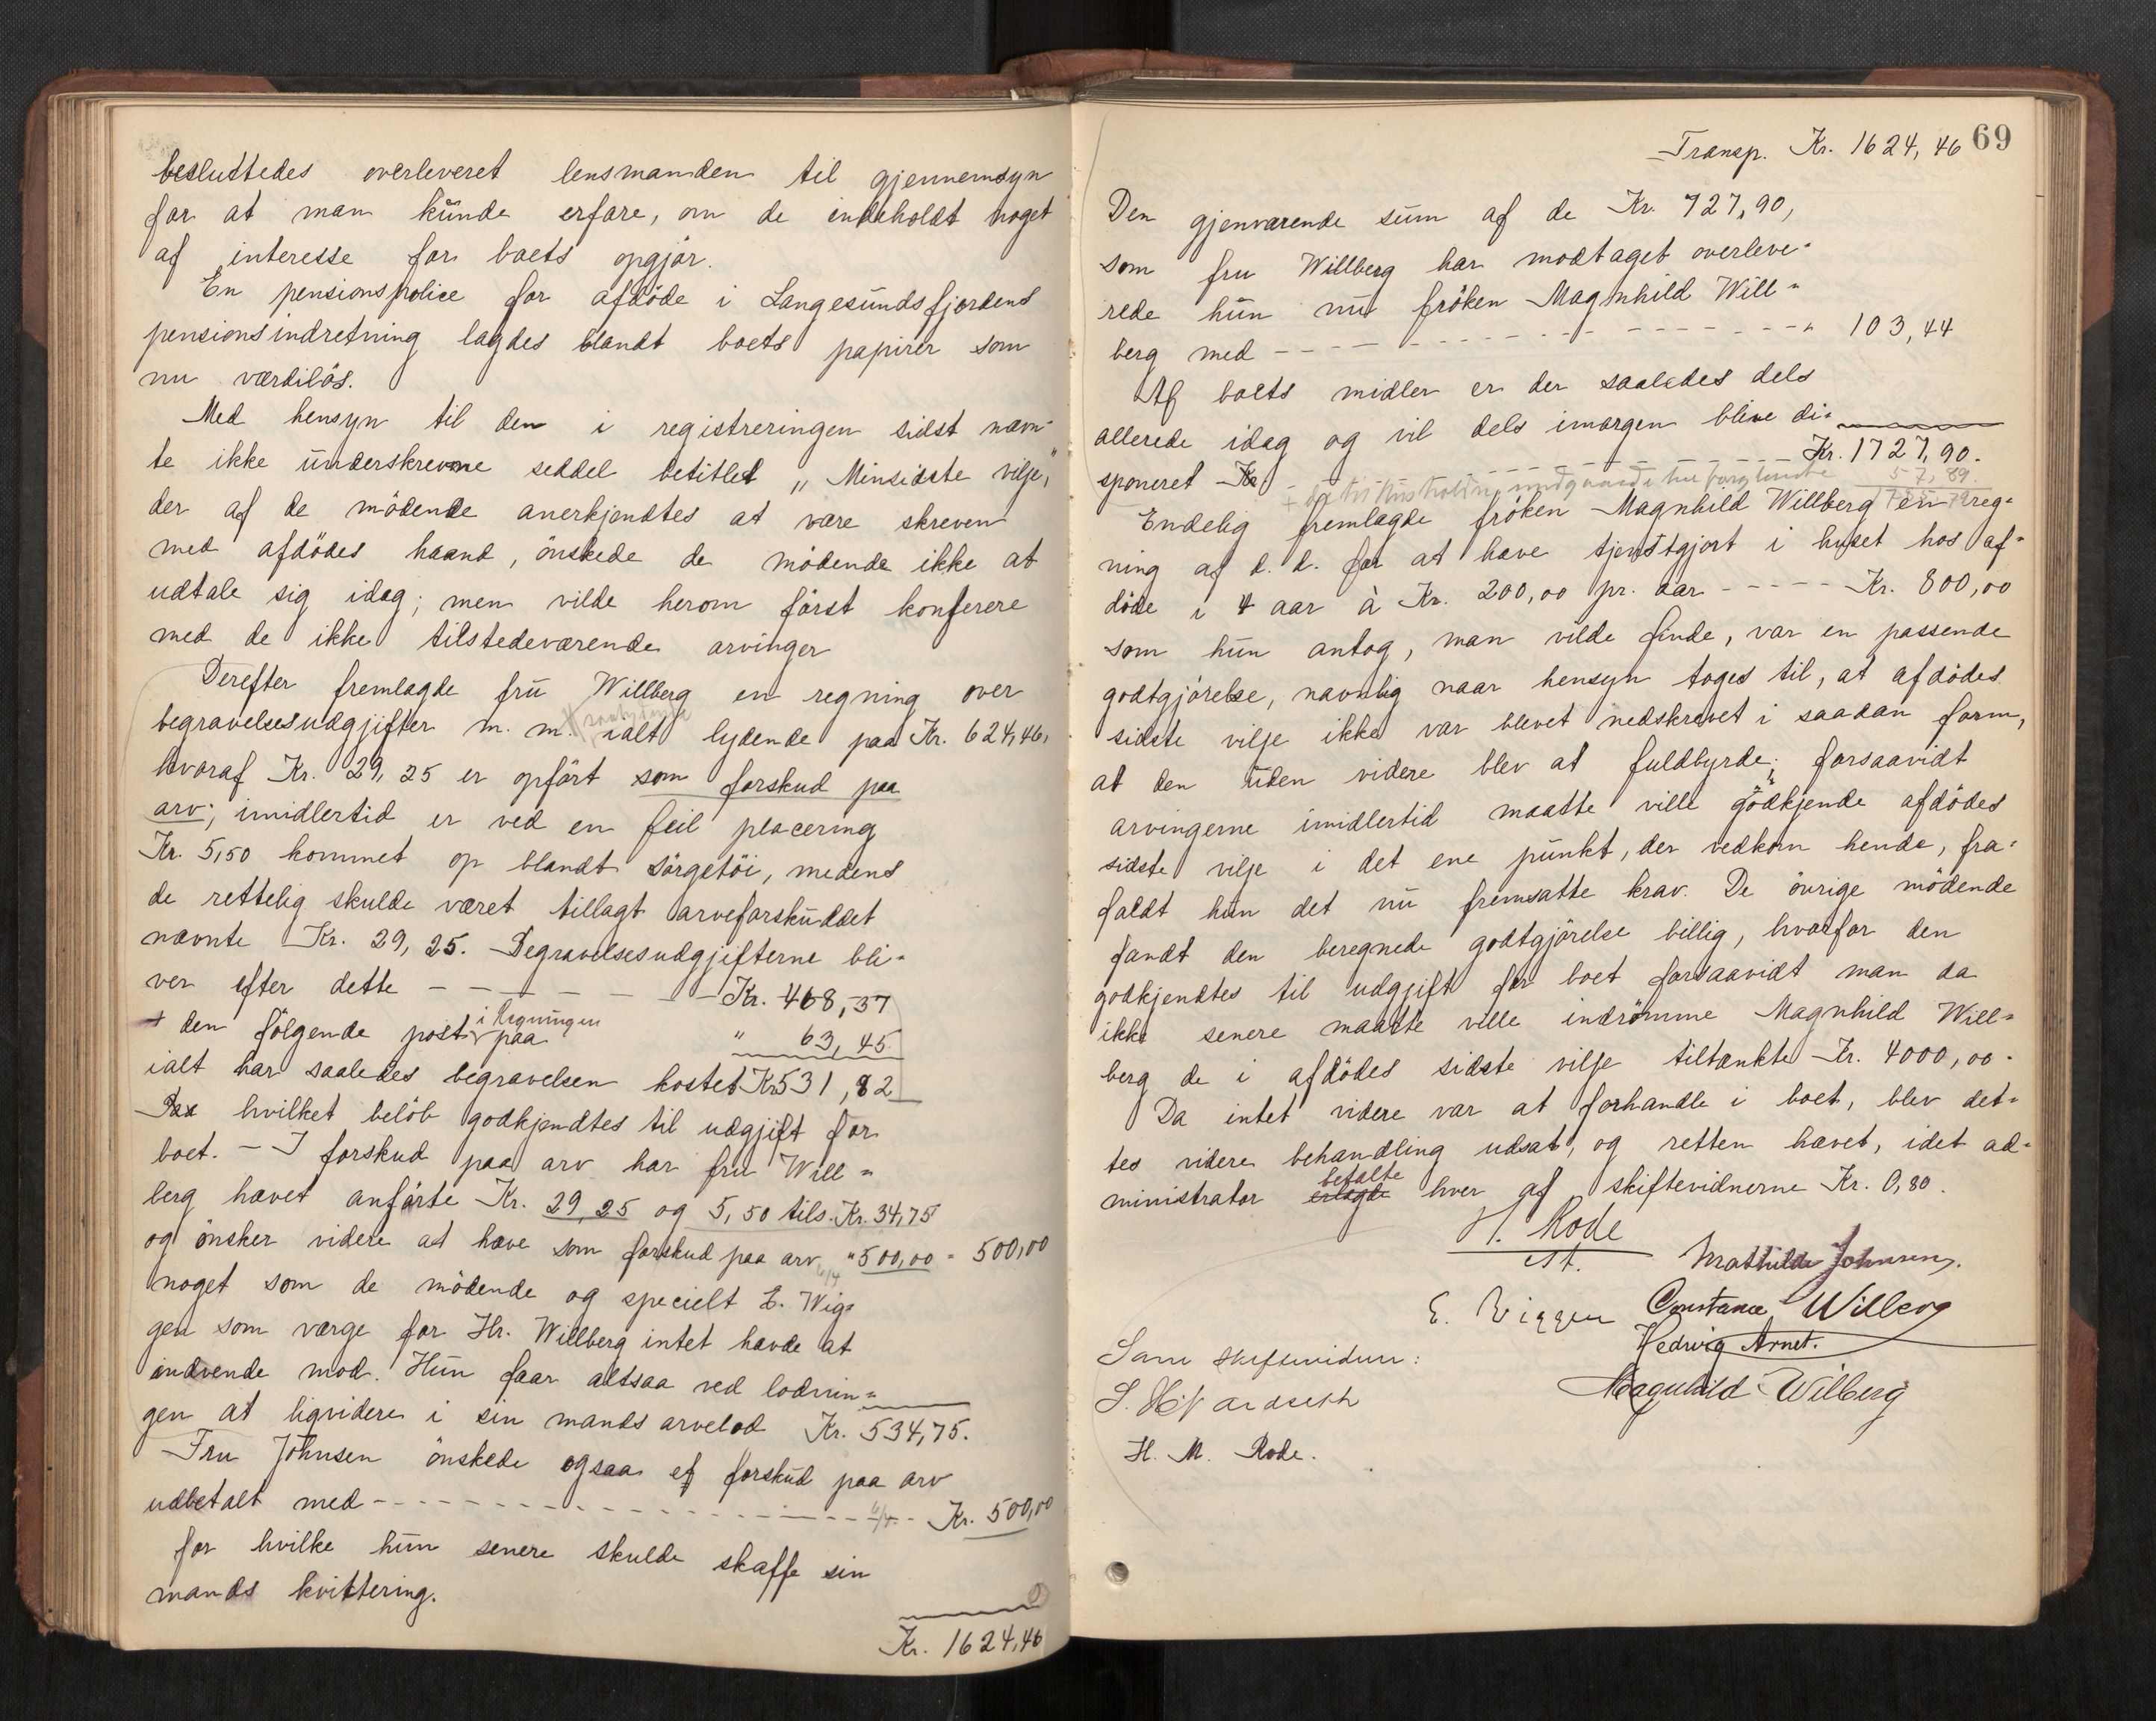 besluttedes overleveret lensmanden til gjennemsyn
for at man kunde erfare, om de indeholdt noget
af interesse for boets opgjör.
En pensionspolice for afdöde i Langesundsfjordens
pensionsindretning lagdes blandt boets papirer som
nu værdilös.
Med hensyn til den i registreringen sidst nævn-
te ikke underskrevne seddel betitlet „Minsidste vilje,"
der af de mödende anerkjendtes at være skreven
med afdödes haand, önskede de mödende ikke at
udtale sig idag; men vilde herom först konferere
med de ikke tilstedeværende arvinger
Derefter fremlagde fru Willberg en regning over
begravelsesudgifter m. m. ialt lydende paa Kr. 624,46,
hvoraf Kr. 29,25 er opfört som forskud paa
arv; imidlertid er ved en feil placering
Kr. 5,50 kommet op blandt sörgetöi, medens
de rettelig skulde været tillagt arveforskuddet
nævnte Kr. 29,25. Begravelsesudgjifterne bli-
ver efter dette - - - - - - Kr. 468,37
+ den fölgende post i regningen paa " 63,45
ialt har saaledes begravelsen kostet Kr 531,82
hvilket belöb godkjendtes til udgjift for
boet. - I forskud paa arv har fru Will-
berg hævet anförte Kr. 29,25 og 5,50 tils. Kr. 34,75
og önsker videre at hæve som forskud paa arv " 500,00 = 500,00
noget som de mödende og specielt E. Wig-
gen som værge for Hr. Willberg intet havde at
indvende mod. Hun faar altsaa ved lodnin-
gen at liqvidere i sin mands arvelod Kr. 534,75.
Fru Johnsen önskede ogsaa et forskud paa arv
udbetalt med - - - - - - - - - - 6/4 - Kr. 500,00
for hvilke hun senere skulde skaffe sin
mands kvittering.
Kr. 1624,46
69
Transp. Kr. 1624,46
Den gjenværende sum af de Kr. 727,90,
som fru Willberg har modtaget overleve-
rede hun nu fröken Magnhild Will-
berg med - - - - - - - - - " 103,44
Af boets midler er der saaledes dels
allerede idag og vil dels imorgen blive di-
sponeret Kr - - - - - - - Kr. 1727,90.
57,89
Endelig fremlagde fröken Magnhild Willberg en reg-
ning af d. d. for at have tjenstgjort i huset hos af-
döde i 4 aar à Kr. 200,00 pr. aar - - - - Kr. 800,00
som hun antog, man vilde finde, var en passende
godtgjörelse, navnlig naar hensyn toges til, at afdödes
sidste vilje ikke var blevet nedskrevet i saadan form,
at den uden videre blev at fuldbyrde; forsaavidt
arvingerne imidlertid maatte ville godkjende afdödes
sidste vilje i det ene punkt, der vedkom hende, fra-
faldt hun det nu fremsatte krav. De övrige mödende
fandt den beregnede godtgjörelse billig, hvorfor den
godkjendtes til udgjift for boet forsaavidt man da
ikke senere maatte ville indrömme Magnhild Will-
berg de i afdödes sidste vilje tiltænkte Kr. 4000,00.
Da intet videre var at forhandle i boet, blev det-
tes videre behandling udsat, og retten hævet, idet ad-
ministrator erlagde betalte hver af skiftevidnerne Kr. 0,80.
H. Rode
st.
Mathilde Johnsen.
E. Viggen Constance Wilberg
Hedvig Arnet.
Som skiftevidner:
Magnhild Wilberg
H. M. Rode.